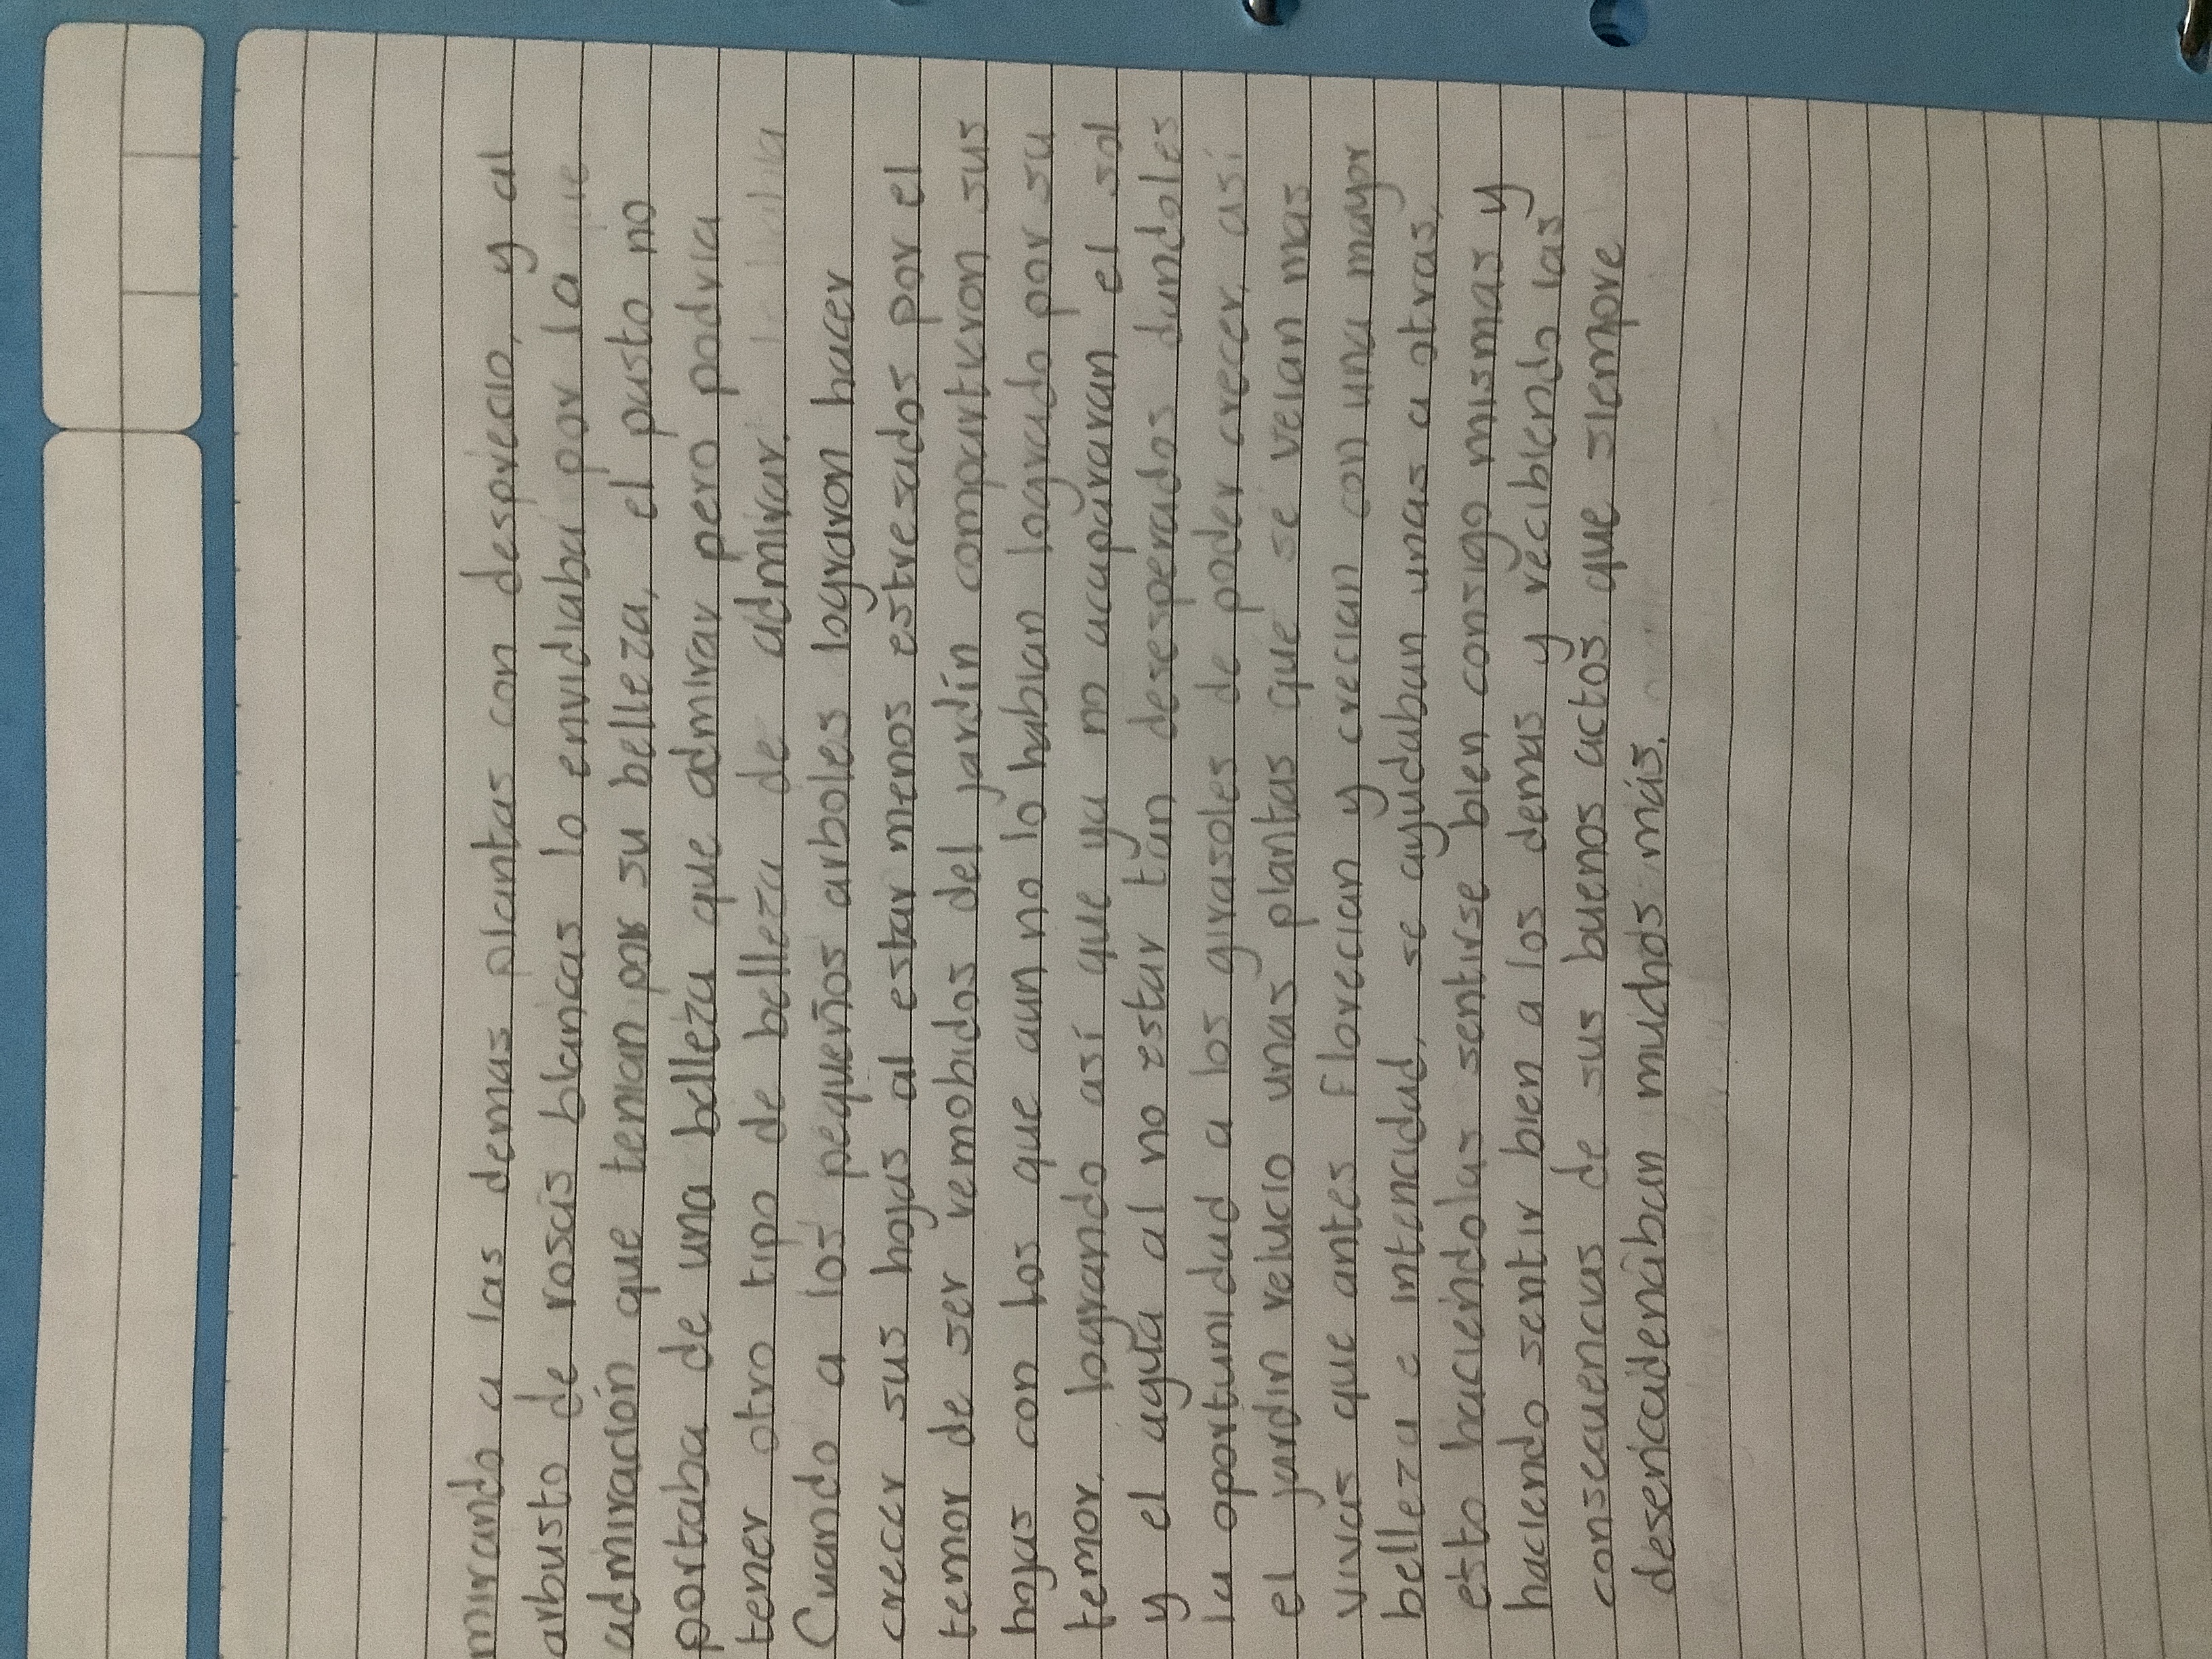 mirando a las demas plantas con desprecio, y al
arbusto de rosas blancas lo envidiaba por la
admiración que tenian por su belleza, el pasto no
portaba de una belleza que admirar pero podria
tener otro tipo de belleza de admirar.
Cuando a los pequeños arboles lograron hacer
crecer sus hojas al estar menos estresados por el
temor de ser remobidos del jardín compartieron sus
hojas con los que aun no lo habian logrado por su
temor, logrando así que ya no acapararan el sol
y el agua al no estar tan desesperados dandoles
la oportunidad a los girasoles de poder crecer, así
el jardin relucio unas plantas que se veian mas
vivas que antes florecian y crecian con una mayor
belleza e intencidad, se ayudaban unas a otras,
esto haciendolas sentirse bien consigo mismas y
haciendo sentir bien a los demas y recibiendo las
consecuencias de sus buenos actos que siempre
desencadenaban muchos más.